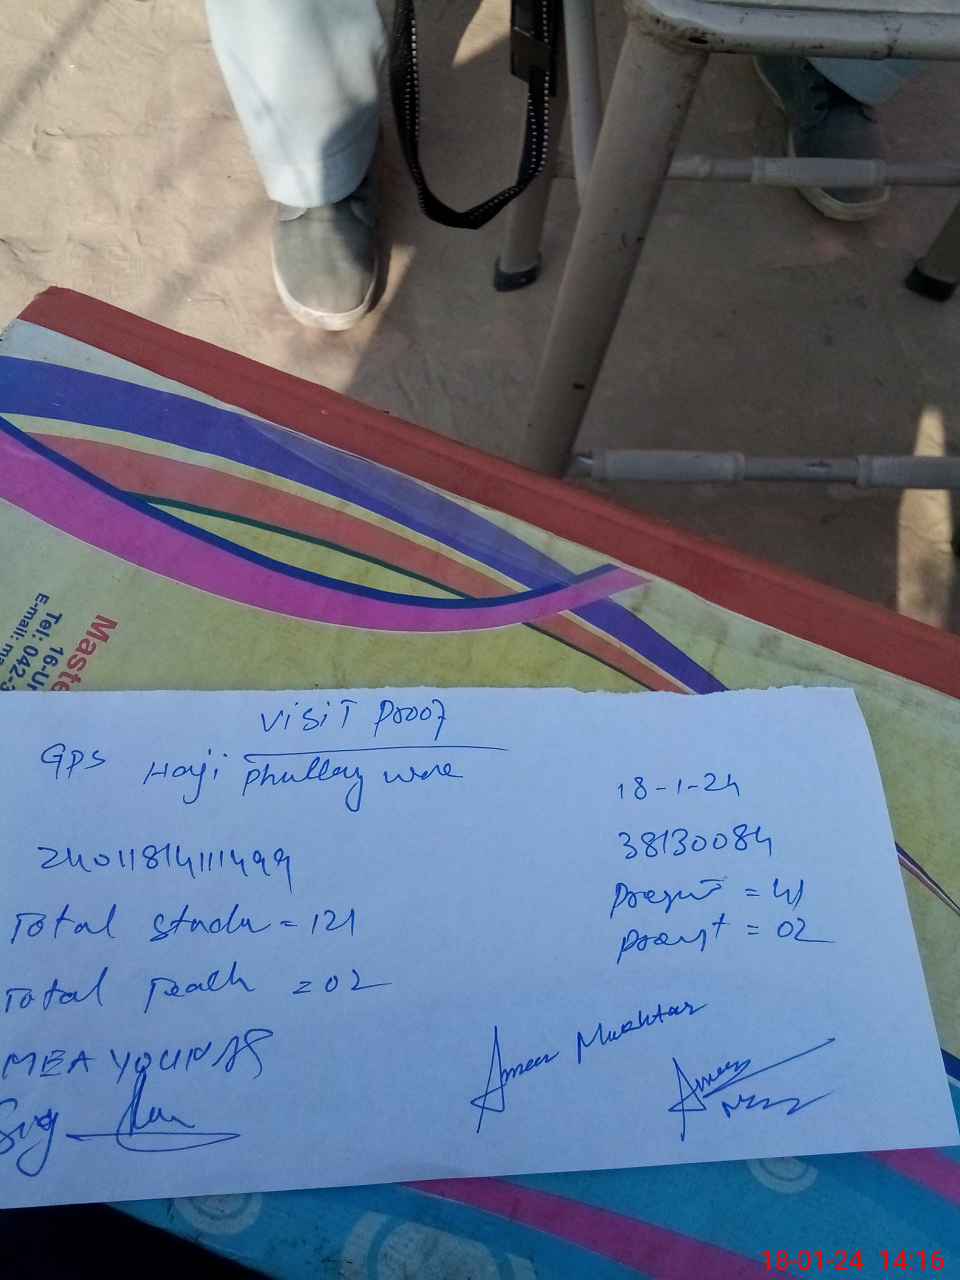 Maste
16-Ur
Tel: 042-3
E-mail: ma
Visit Proof
GPS Haji Phullay
18-1-24
24011814111499
38130084
Total Stadu = 121
Present = 41
Total Teach = 02
Present = 02
MEA YOUNAS
Ameer Mukhtar
Sig
Ameer
18-01-24 14:16